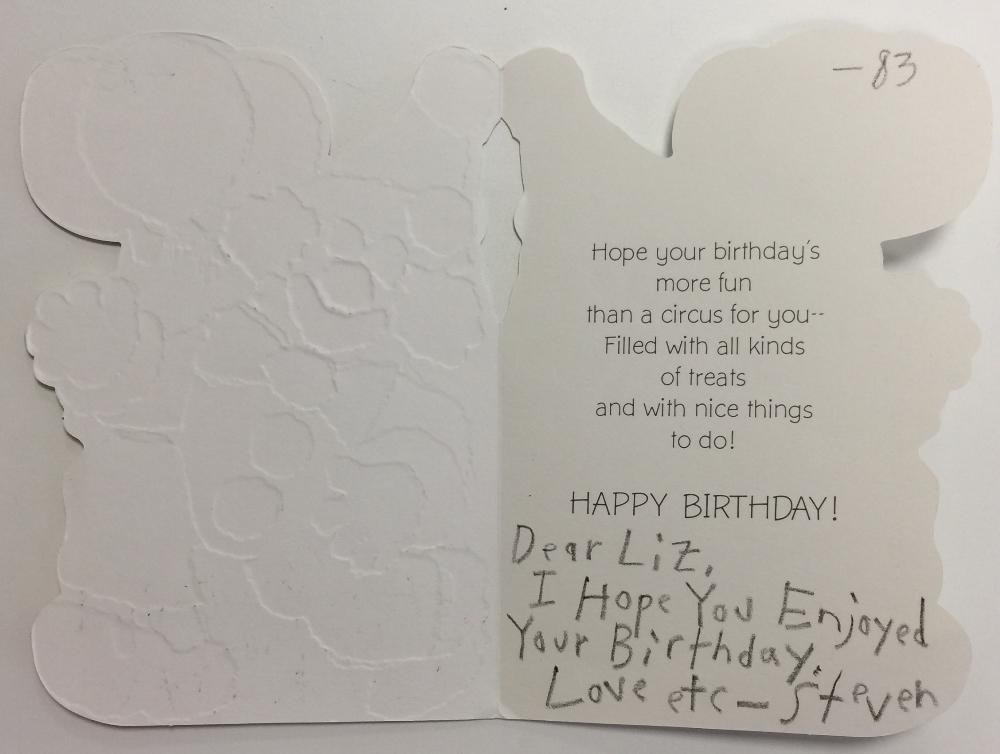 —83
Hope your birthday's
more fun
than a circus for you--
Filled with all kinds
of treats
and with nice things
to do!
HAPPY BIRTHDAY!
Dear Liz,
I Hope You Enjoyed
Your Birthday.
Love etc — Steven